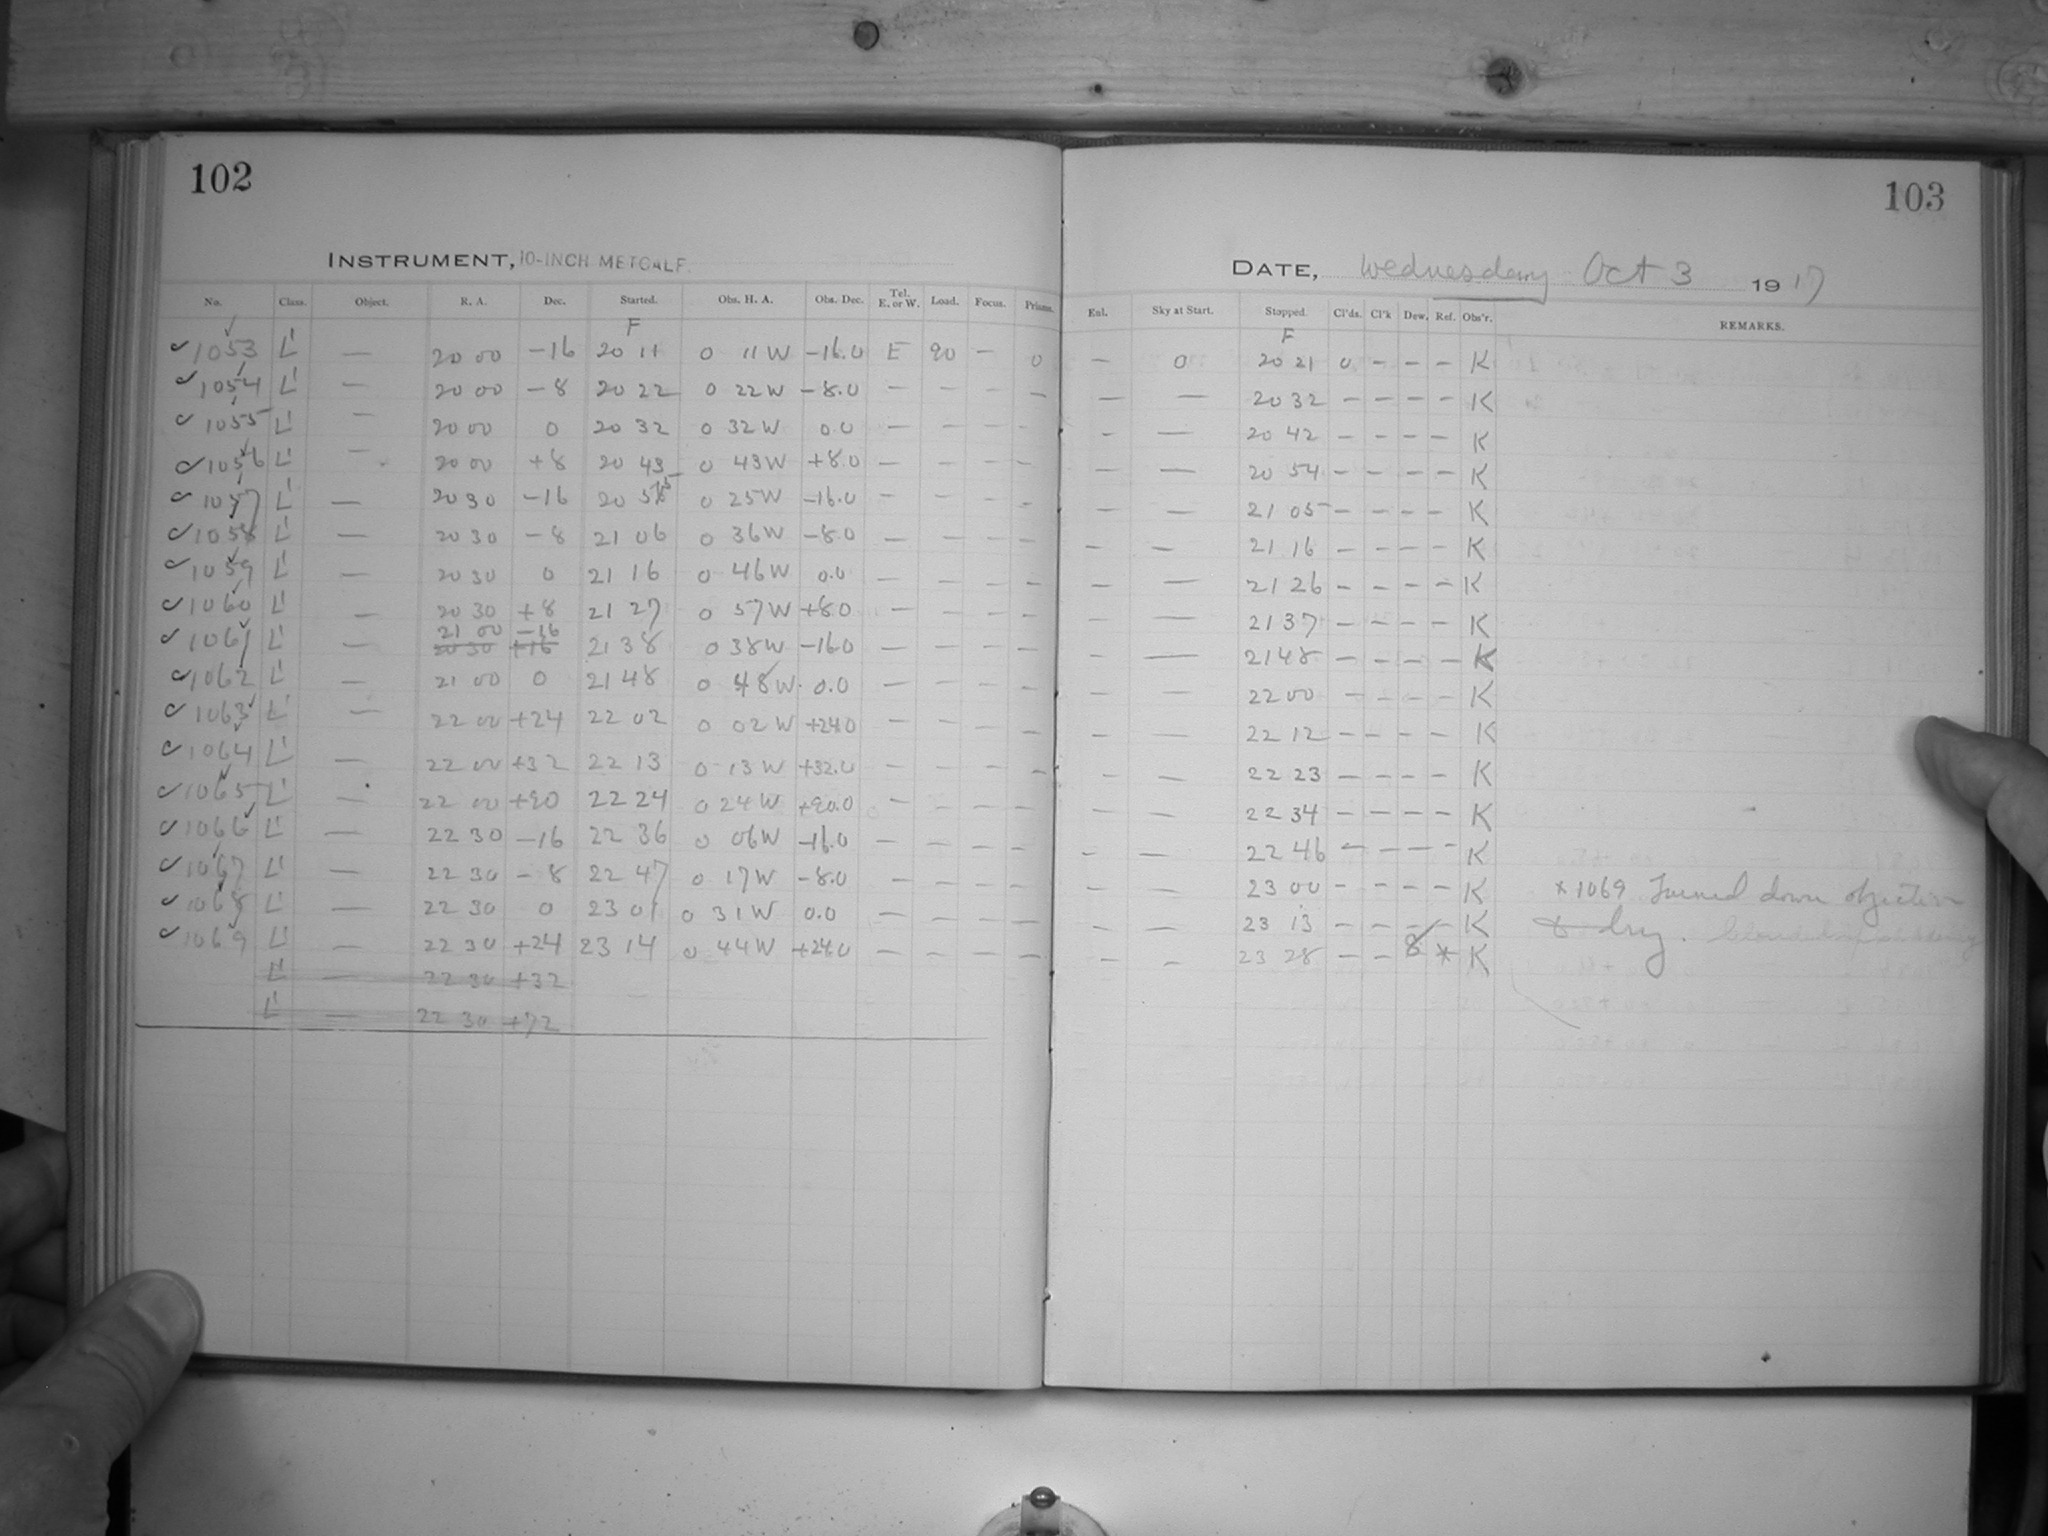 102
INSTRUMENT, 10-INCH METCALF.
No. Class. Object. R. A. Dec. Started. Obs. H. A. Obs. Dec. Tel. E. or W. Load. Focus. Prisms.
F
1053 L' — 20 00 -16 20 11 0 11 W -16.0 E 90 - 0
1054 L' — 20 00 -8 20 22 0 22 W -8.0 — — — —
1055 L' — 20 00 0 20 32 0 32 W 0.0 — — — —
1056 L' — 20 00 +8 20 43 0 43 W +8.0 — — — —
1057 L' — 20 30 -16 20 55 0 25 W -16.0 — — — —
1058 L' — 20 30 -8 21 06 0 36 W -8.0 — — — —
1059 L' — 20 30 0 21 16 0 46 W 0.0 — — — —
1060 L' — 20 30 +8 21 27 0 57 W +8.0 — — — —
21 00 -16
1061 L' — 20 30 +16 21 38 0 38 W -16.0 — — — —
1062 L' — 21 00 0 21 48 0 48 W 0.0 — — — —
1063 L' — 22 00 +24 22 02 0 02 W +24.0 — — — —
1064 L' — 22 00 +32 22 13 0 13 W +32.0 — — — —
1065 L' — 22 00 +90 22 24 0 24 W +90.0 — — — —
1066 L' — 22 30 -16 22 36 0 06 W -16.0 — — — —
1067 L' — 22 30 -8 22 47 0 17 W -8.0 — — — —
1068 L' — 22 30 0 23 01 0 31 W 0.0 — — — —
1069 L' — 22 30 +24 23 14 0 44 W +24.0 — — — —
L' — 22 30 +32
L' — 22 30 +72
103
DATE, Wednesday Oct 3 1917
Enl. Sky at Start. Stopped. Cl'ds. Cl'k Dew. Ref. Obs'r. REMARKS.
F
— 0 20 21 0 - - - K
— — 20 32 - - - - K
— — 20 42 - - - - K
— — 20 54 - - - - K
— — 21 05 - - - - K
— — 21 16 - - - - K
— — 21 26 - - - - K
— — 21 37 - - - - K
— — 21 48 - - - - K
— — 22 00 - - - - K
— — 22 12 - - - - K
— — 22 23 - - - - K
— — 22 34 - - - - K
— — 22 46 - - - - K
— — 23 00 - - - - K * 1069 Turned down objective
— — 23 13 - - - - K to dry.
— — 23 28 - - 8 * K